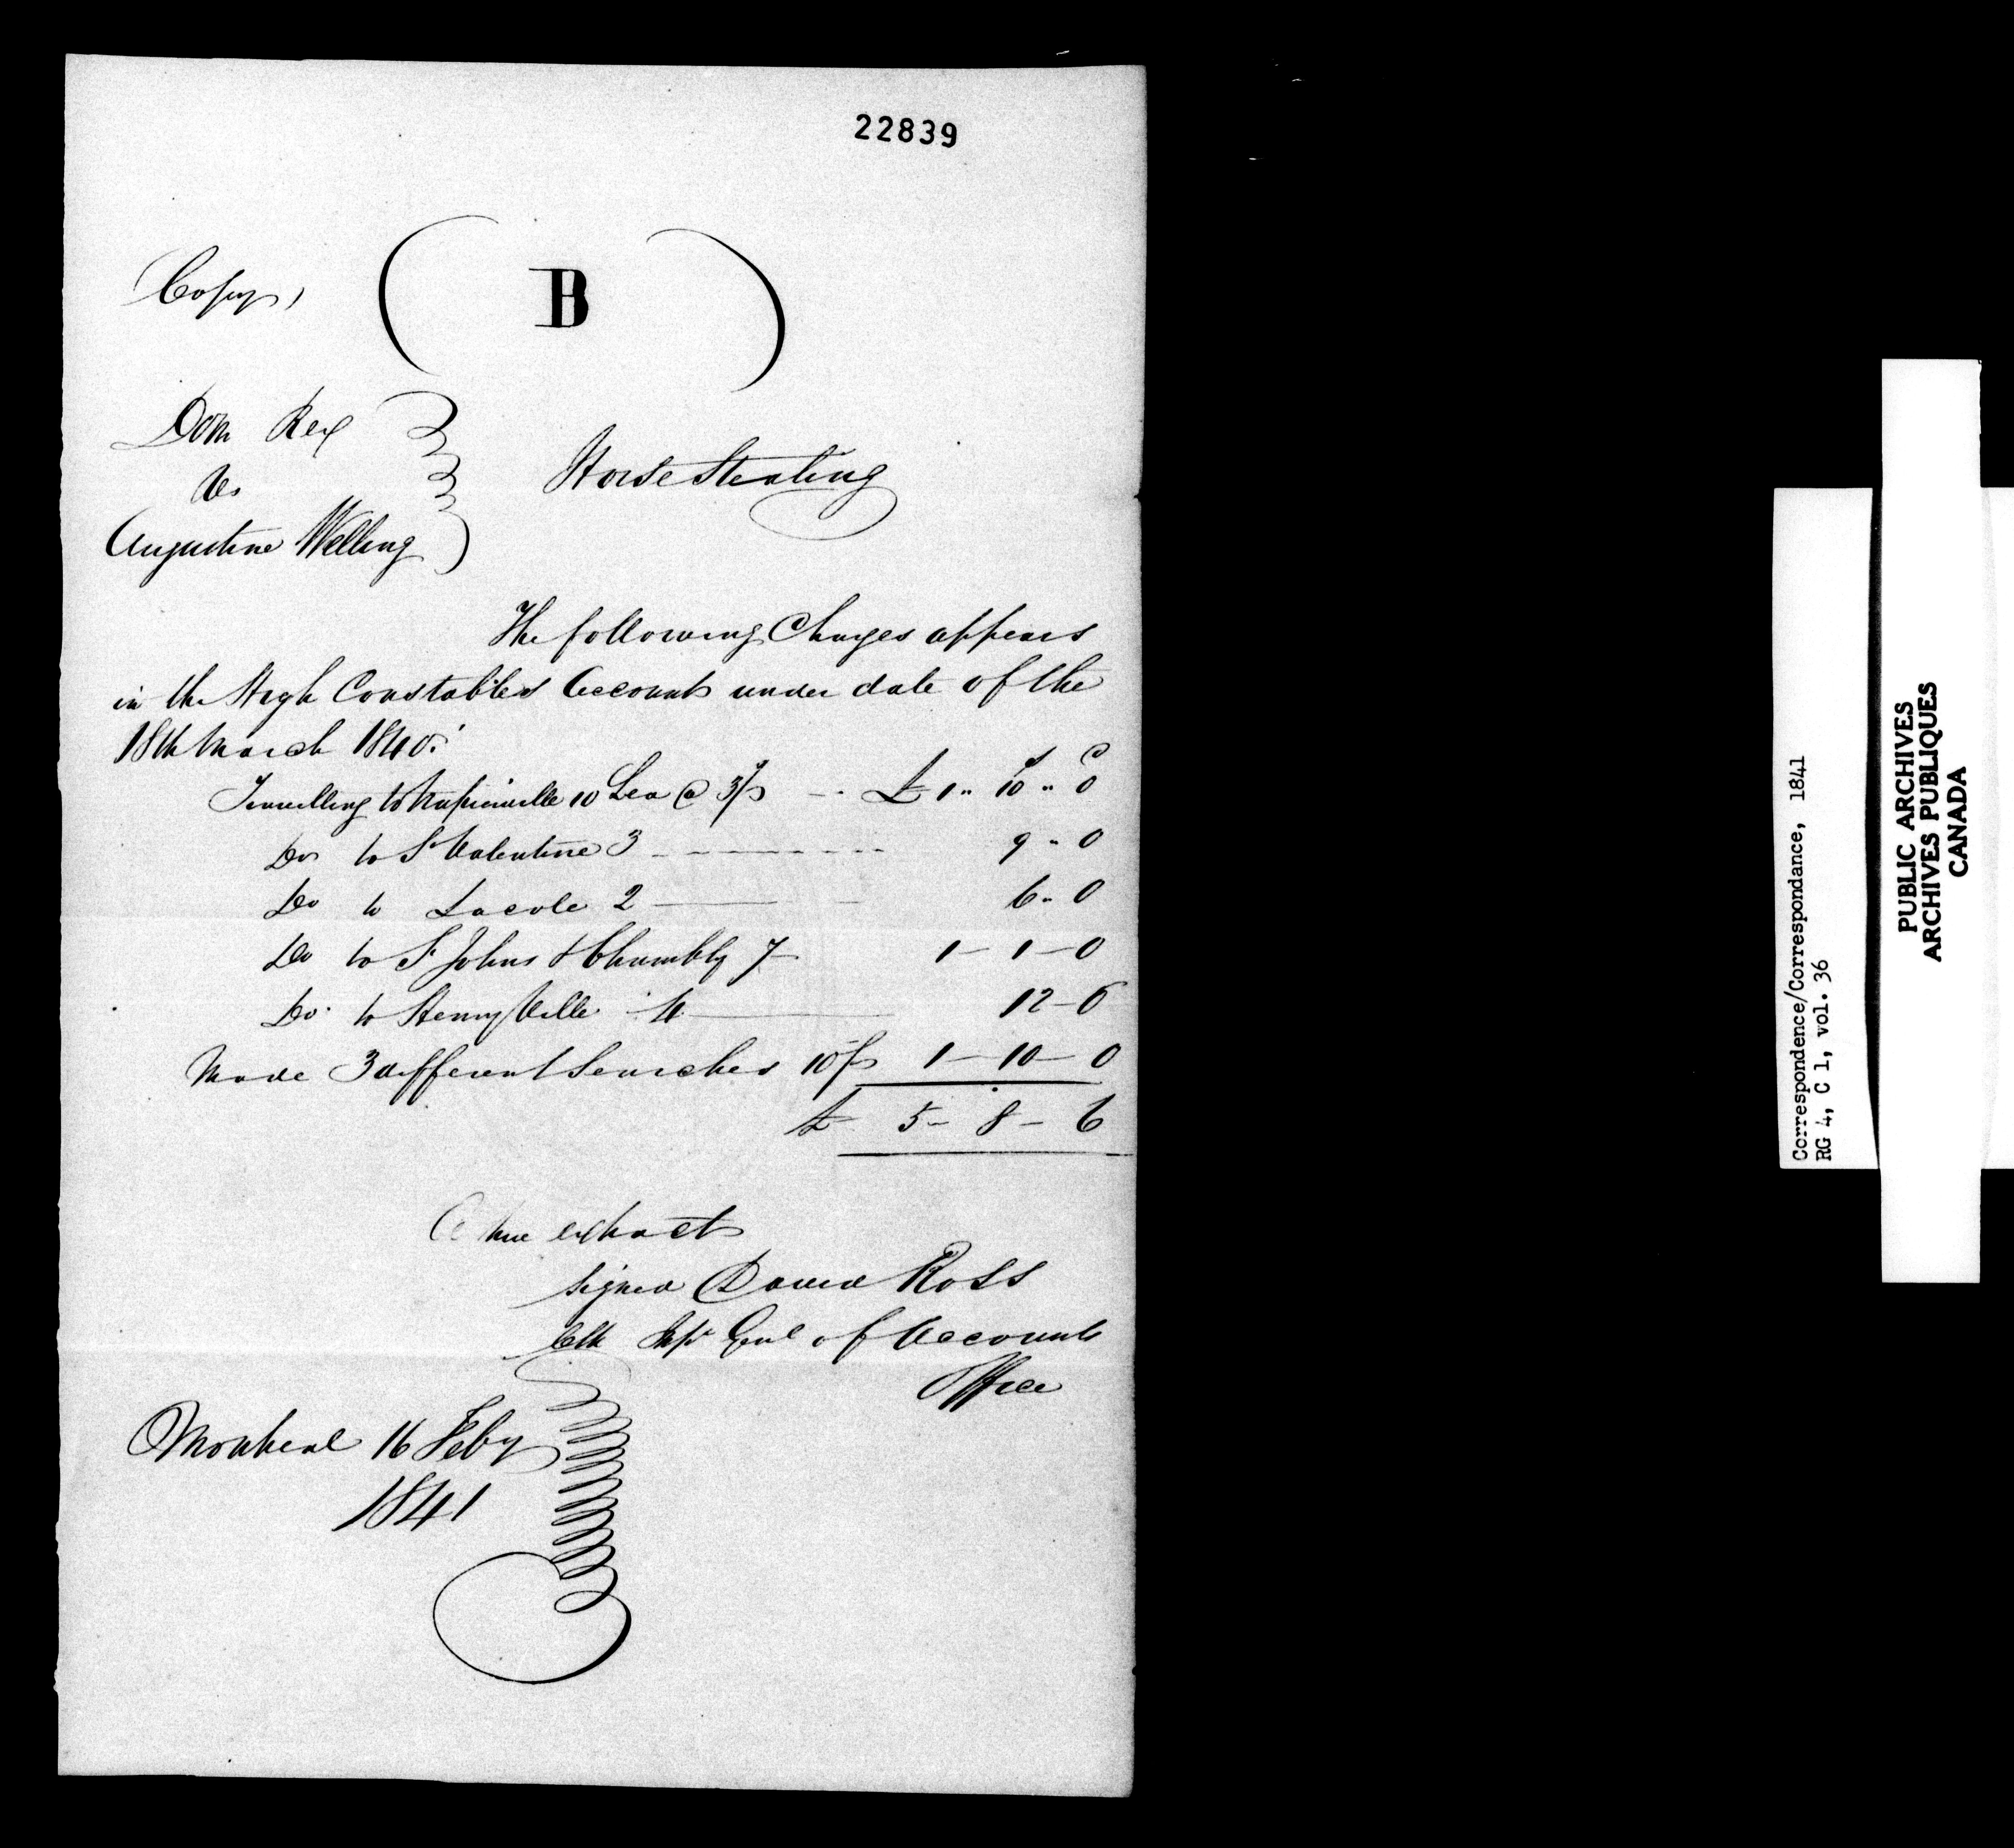 22839
Copy,
( B )
Dom Rex
vs
Augustine Welling
Horse Stealing
The following Charges appears
in the High Constables Accounts under date of the
18th March 1840:
s d
Travelling to Napierville 10 Lea @ 3/ £ 1 " 10 " 0
Do to St Valentine 3 9 " 0
Do to Lacole 2 6 " 0
Do to St Johns & Chambly 7 1 - 1 - 0
Do to HenryVille 4 12 - 6
Made 3 different Searches 10/ 1 - 10 - 0
£ 5 - 8 - 6
A true extract
signed David Ross
Clk Inpr Genl of Accounts
Office
Montreal 16 Feby
1841
Correspondence/Correspondance, 1841
RG 4, C 1, vol. 36
PUBLIC ARCHIVES
ARCHIVES PUBLIQUES
CANADA